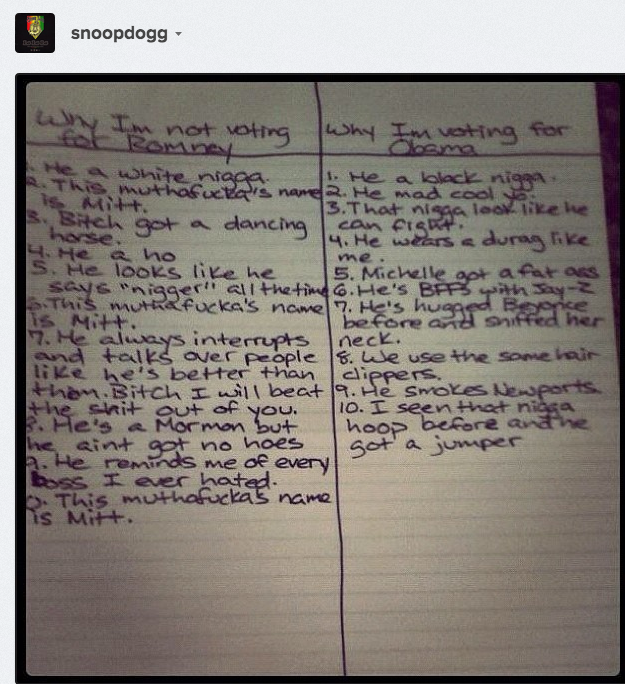 snoopdogg
Why I'm not voting
for Romney
1. He a white nigga.
2. This muthafucka's name
is Mitt.
3. Bitch got a dancing
horse.
4. He a ho
5. He looks like he
says "nigger" all the time
6. This muthafucka's name
is Mitt.
7. He always interrupts
and talks over people
like he's better than
them. Bitch I will beat
the shit out of you.
8. He's a Mormon but
he aint got no hoes
9. He reminds me of every
boss I ever hated.
0. This muthafucka's name
is Mitt.
Why I'm voting for
Obama
1. He a black nigga.
2. He mad cool yo.
3. That nigga look like he
can fight.
4. He wears a durag like
me.
5. Michelle got a fat ass
6. He's BFFs with Jay-Z
7. He's hugged Beyonce
before and sniffed her
neck.
8. We use the same hair
clippers.
9. He smokes Newports
10. I seen that nigga
hoop before and he
got a jumper